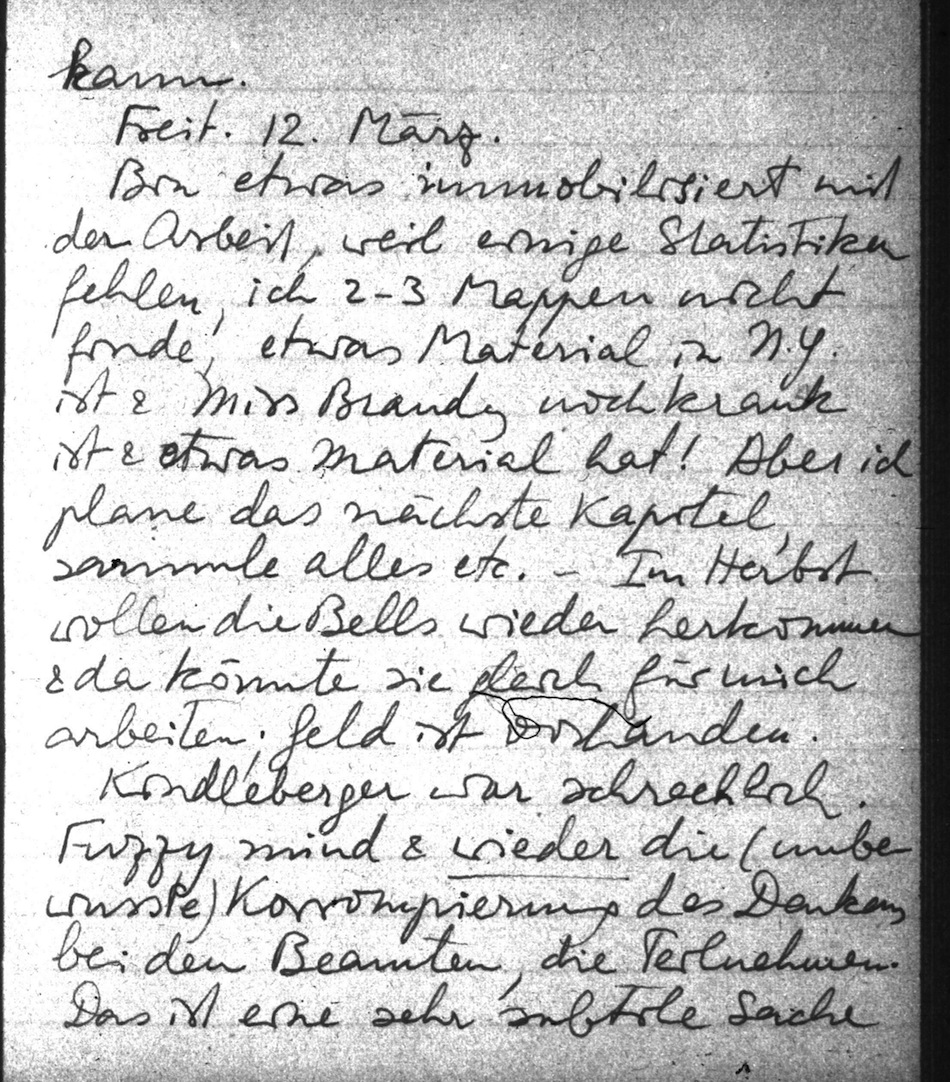 kann.
Freit. 12. März.
Bin etwas immobilisiert mit
der Arbeit, weil einige Statistiken
fehlen, ich 2-3 Mappen nicht
finde, etwas Material in N.Y.
ist & Miss Brandy noch krank
ist & etwas Material hat! Aber ich
plane das nächste Kapitel,
sammle alles etc. – Im Herbst
wollen die Bells wieder herkommen
& da könnte sie gleich für mich
arbeiten; Geld ist vorhanden.
Kindleberger war schrecklich.
Fuzzy mind & wieder die (unbe
wusste) Korrumpierung des Denkens
bei den Beamten, die Teilnehmen.
Das ist eine sehr subtile Sache